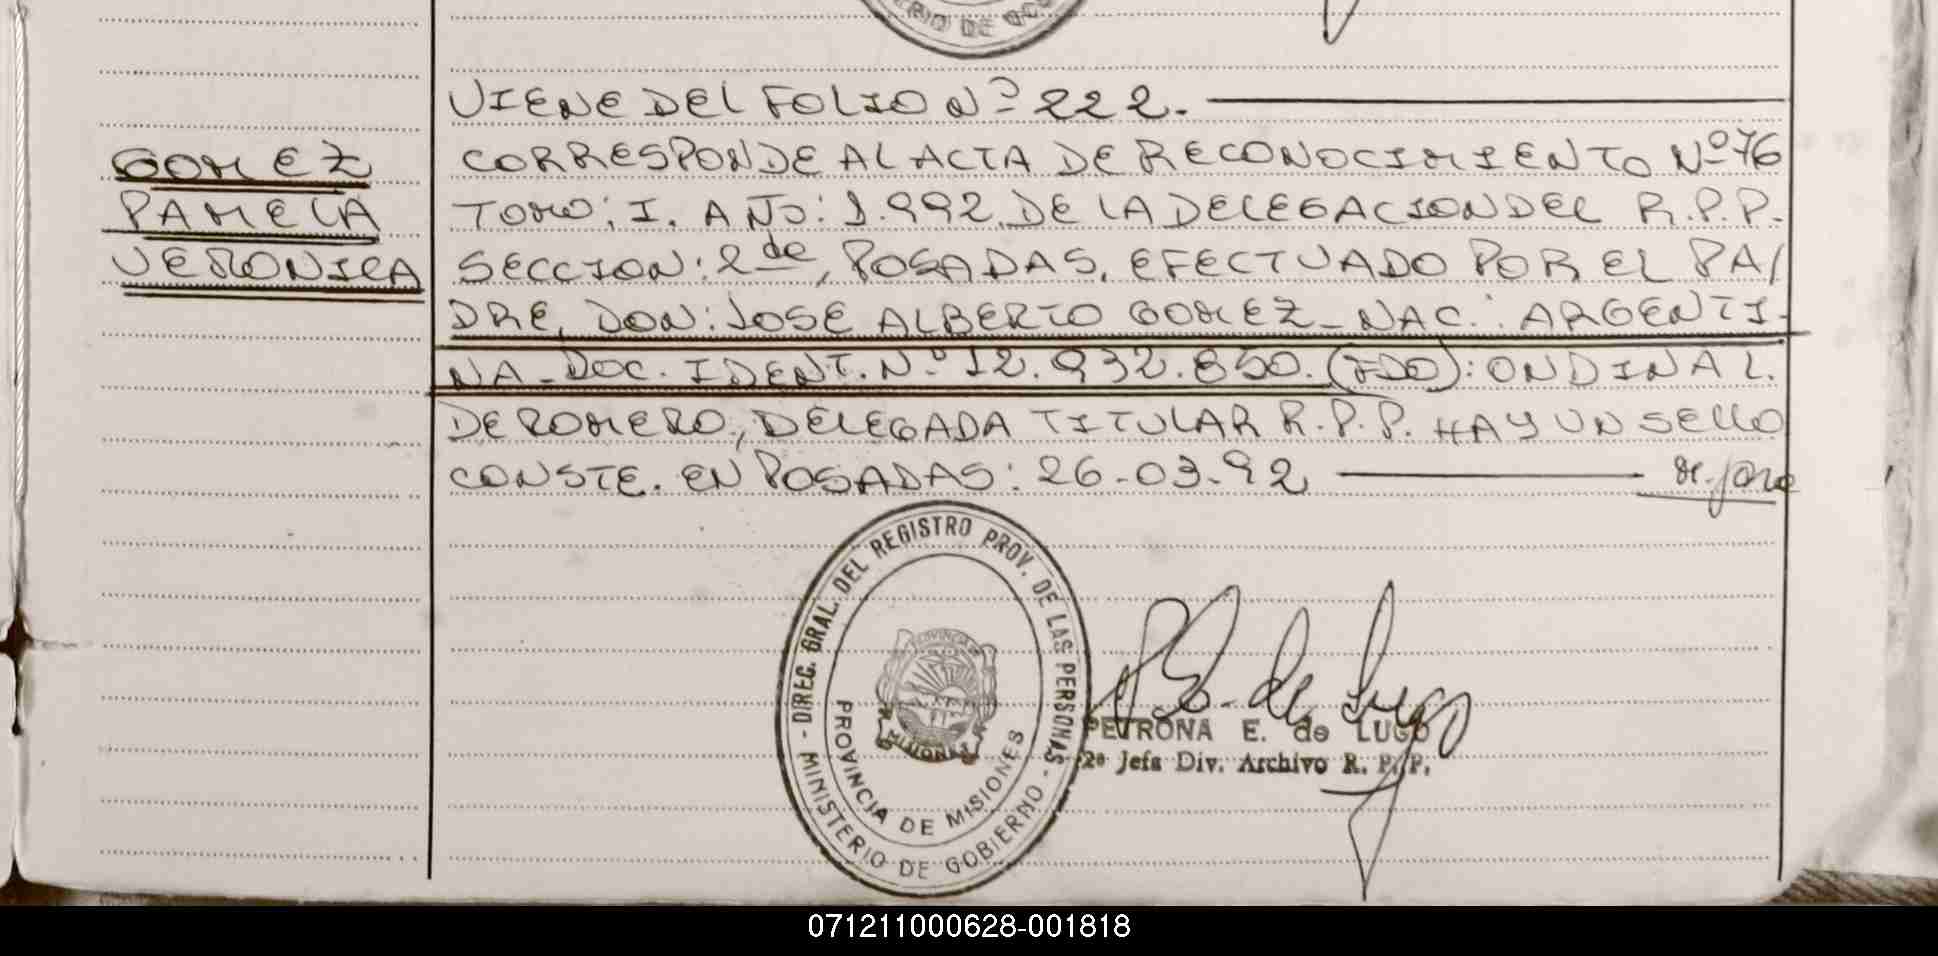 VIENE DEL FOLIO Nº 222.
GOMEZ
PAMELA
VERONICA
CORRESPONDE AL ACTA DE RECONOCIMIENTO Nº 76
TOMO: I. AÑO: 1.992, DE LA DELEGACION DEL R.P.P.
SECCION: 2da, POSADAS, EFECTUADO POR EL PA/
DRE, DON: JOSE ALBERTO GOMEZ - NAC: ARGENTI-
NA - DOC. IDENT. Nº 12.932.850. (FDO): ONDINA L.
DE ROMERO, DELEGADA TITULAR R.P.P. HAY UN SELLO
CONSTE. EN POSADAS: 26-03-92
- DIREC. GRAL. DEL REGISTRO PROV. DE LAS PERSONAS -
MINISTERIO DE GOBIERNO
PROVINCIA DE MISIONES
PROVINCIA DE
MISIONES
P. E. de Lugo
PETRONA E. de LUGO
2ª Jefa Div. Archivo R. P. P.
071211000628-001818